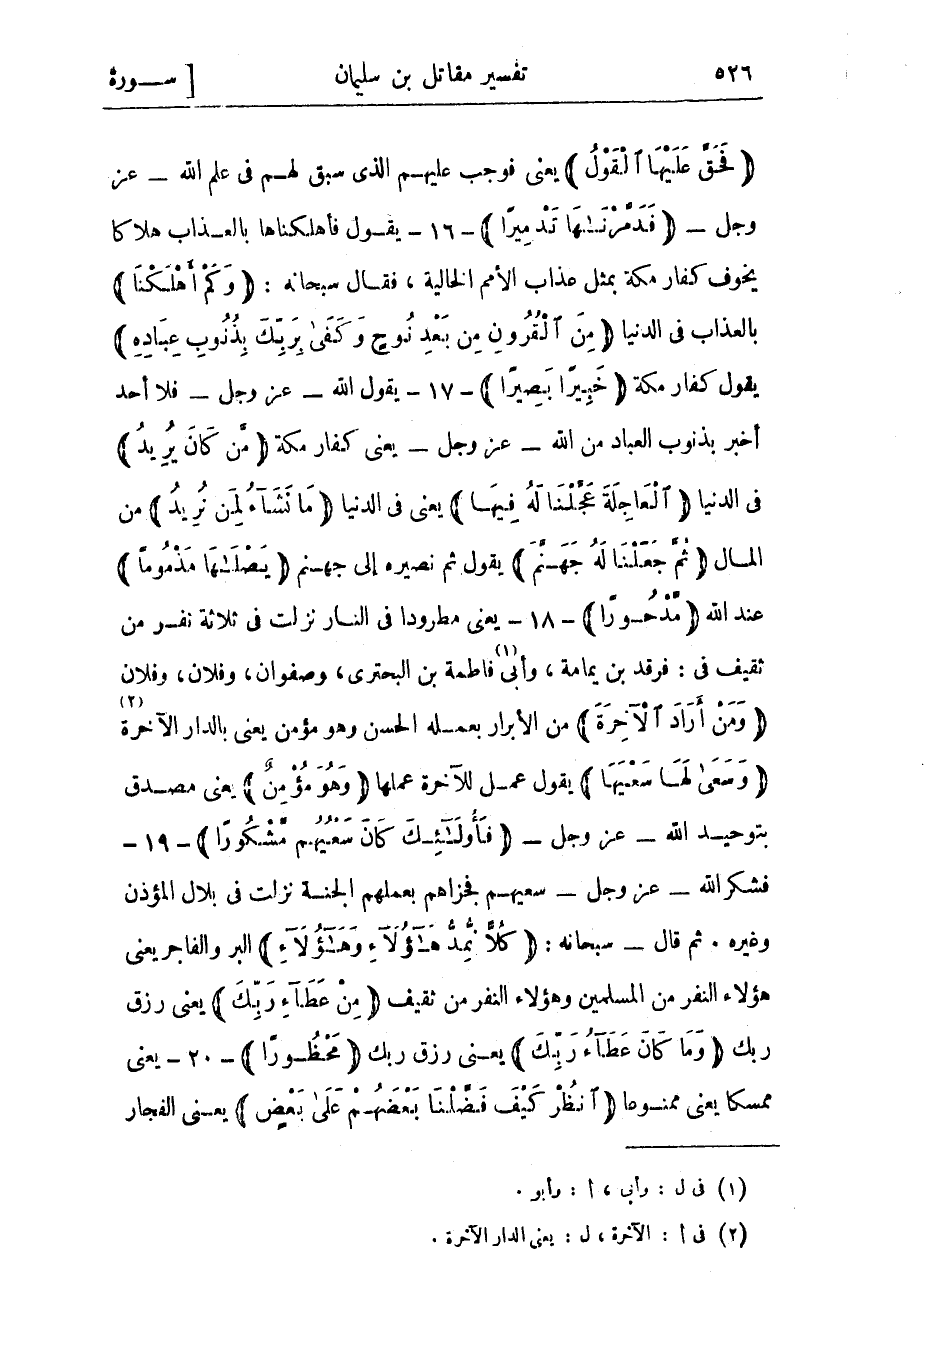 ٥٢٦ تفسير مقاتل بن سليمان [ سورة
﴿ فَحَقَّ عَلَيْهَا ٱلْقَوْلُ ﴾ يعنى فوجب عليهم الذى سبق لهم فى علم الله — عز
وجل — ﴿ فَدَمَّرْنَـٰهَا تَدْمِيرًا ﴾ - ١٦ - يقول فأهلكناها بالعذاب هلاكا
يخوف كفار مكة بمثل عذاب الأمم الخالية ، فقال سبحانه : ﴿ وَكَمْ أَهْلَكْنَا ﴾
بالعذاب فى الدنيا ﴿ مِنَ ٱلْقُرُونِ مِن بَعْدِ نُوحٍ وَكَفَىٰ بِرَبِّكَ بِذُنُوبِ عِبَادِهِ ﴾
يقول كفار مكة ﴿ خَبِيرًا بَصِيرًا ﴾ - ١٧ - يقول الله — عز وجل — فلا أحد
أخبر بذنوب العباد من الله — عز وجل — يعنى كفار مكة ﴿ مَّن كَانَ يُرِيدُ ﴾
فى الدنيا ﴿ ٱلْعَاجِلَةَ عَجَّلْنَا لَهُ فِيهَا ﴾ يعنى فى الدنيا ﴿ مَا نَشَآءُ لِمَن نُّرِيدُ ﴾ من
المال ﴿ ثُمَّ جَعَلْنَا لَهُ جَهَنَّمَ ﴾ يقول ثم نصيره إلى جهنم ﴿ يَصْلَـٰهَا مَذْمُومًا ﴾
عند الله ﴿ مَّدْحُورًا ﴾ - ١٨ - يعنى مطرودا فى النار نزلت فى ثلاثة نفر من
ثقيف فى : فرقد بن يمامة ، وأبى (١) فاطمة بن البحترى ، وصفوان ، وفلان ، وفلان
﴿ وَمَنْ أَرَادَ ٱلْآخِرَةَ ﴾ من الأبرار بعمله الحسن وهو مؤمن يعنى بالدار الآخرة (٢)
﴿ وَسَعَىٰ لَهَا سَعْيَهَا ﴾ يقول عمل للآخرة عملها ﴿ وَهُوَ مُؤْمِنٌ ﴾ يعنى مصدق
بتوحيد الله — عز وجل — ﴿ فَأُولَـٰٓئِكَ كَانَ سَعْيُهُم مَّشْكُورًا ﴾ - ١٩ -
فشكر الله — عز وجل — سعيهم فجزاهم بعملهم الجنة نزلت فى بلال المؤذن
وغيره . ثم قال — سبحانه : ﴿ كُلًّا نُّمِدُّ هَـٰٓؤُلَآءِ وَهَـٰٓؤُلَآءِ ﴾ البر والفاجر يعنى
هؤلاء النفر من المسلمين وهؤلاء النفر من ثقيف ﴿ مِنْ عَطَآءِ رَبِّكَ ﴾ يعنى رزق
ربك ﴿ وَمَا كَانَ عَطَآءُ رَبِّكَ ﴾ يعنى رزق ربك ﴿ مَحْظُورًا ﴾ - ٢٠ - يعنى
ممسكا يعنى ممنوعا ﴿ ٱنظُرْ كَيْفَ فَضَّلْنَا بَعْضَهُمْ عَلَىٰ بَعْضٍ ﴾ يعنى الفجار
(١) فى ل : وأبى ، أ : وأبو .
(٢) فى أ : الآخرة ، ل : يعنى الدار الآخرة .